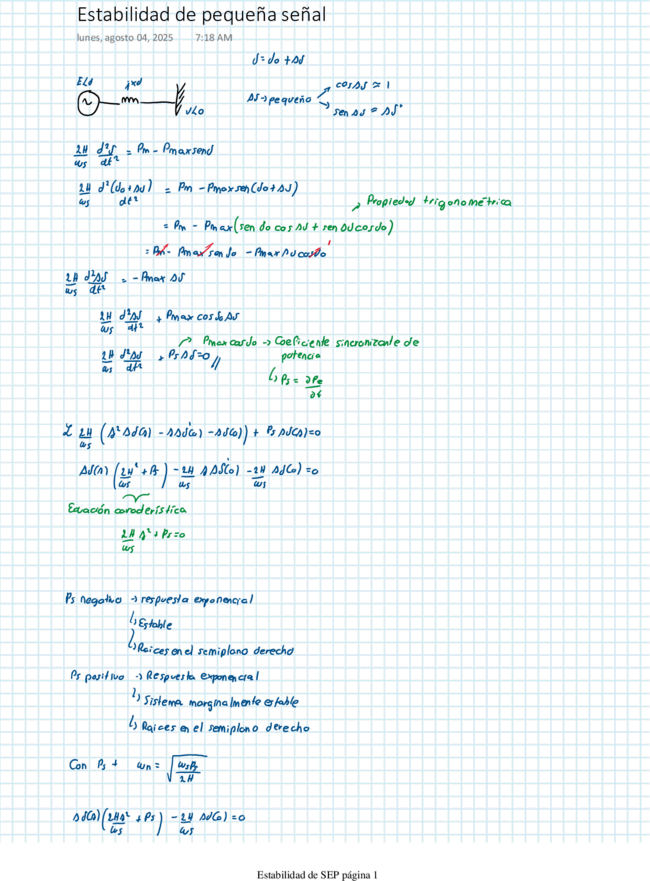 Estabilidad de pequeña señal
lunes, agosto 04, 2025    7:18 AM
δ = δo + Δδ
E∠δ    jxd    V∠0
Δδ → pequeño → cosΔδ ≈ 1
→ senΔδ ≈ Δδ
2H/ωs d²δ/dt² = Pm - Pmaxsenδ
2H/ωs d²(δo+Δδ)/dt² = Pm - Pmaxsen(δo+Δδ)
Propiedad trigonométrica
= Pm - Pmax(sen δo cos Δδ + sen Δδ cosδo)
= Pm - Pmax senδo - Pmax Δδ cosδo
2H/ωs d²Δδ/dt² = -Pmax Δδ
2H/ωs d²Δδ/dt² + Pmax cosδo Δδ
2H/ωs d²Δδ/dt² + PsΔδ=0 //
Pmaxcosδo → Coeficiente sincronizante de
potencia
↳ Ps = ∂Pe/∂δ
ℒ 2H/ωs (s² Δδ(s) - sΔδ(o) - Δδ(o)) + Ps Δδ(s)=0
Δδ(s) (2H/ωs ² + Ps) - 2H/ωs s Δδ(o) - 2H/ωs Δδ(o) = 0
Ecuación caracterís​tica
2H/ωs s² + Ps=0
Ps negativo → respuesta exponencial
↳ Estable
↳ Raices en el semiplano derecho
Ps positivo → Respuesta exponencial
↳ Sistema marginalmente estable
↳ Raices en el semiplano derecho
Con Ps +    ωn = √(ωsPs/2H)
Δδ(s)(2Hs²/ωs + Ps) - 2H/ωs Δδ(o) = 0
Estabilidad de SEP página 1